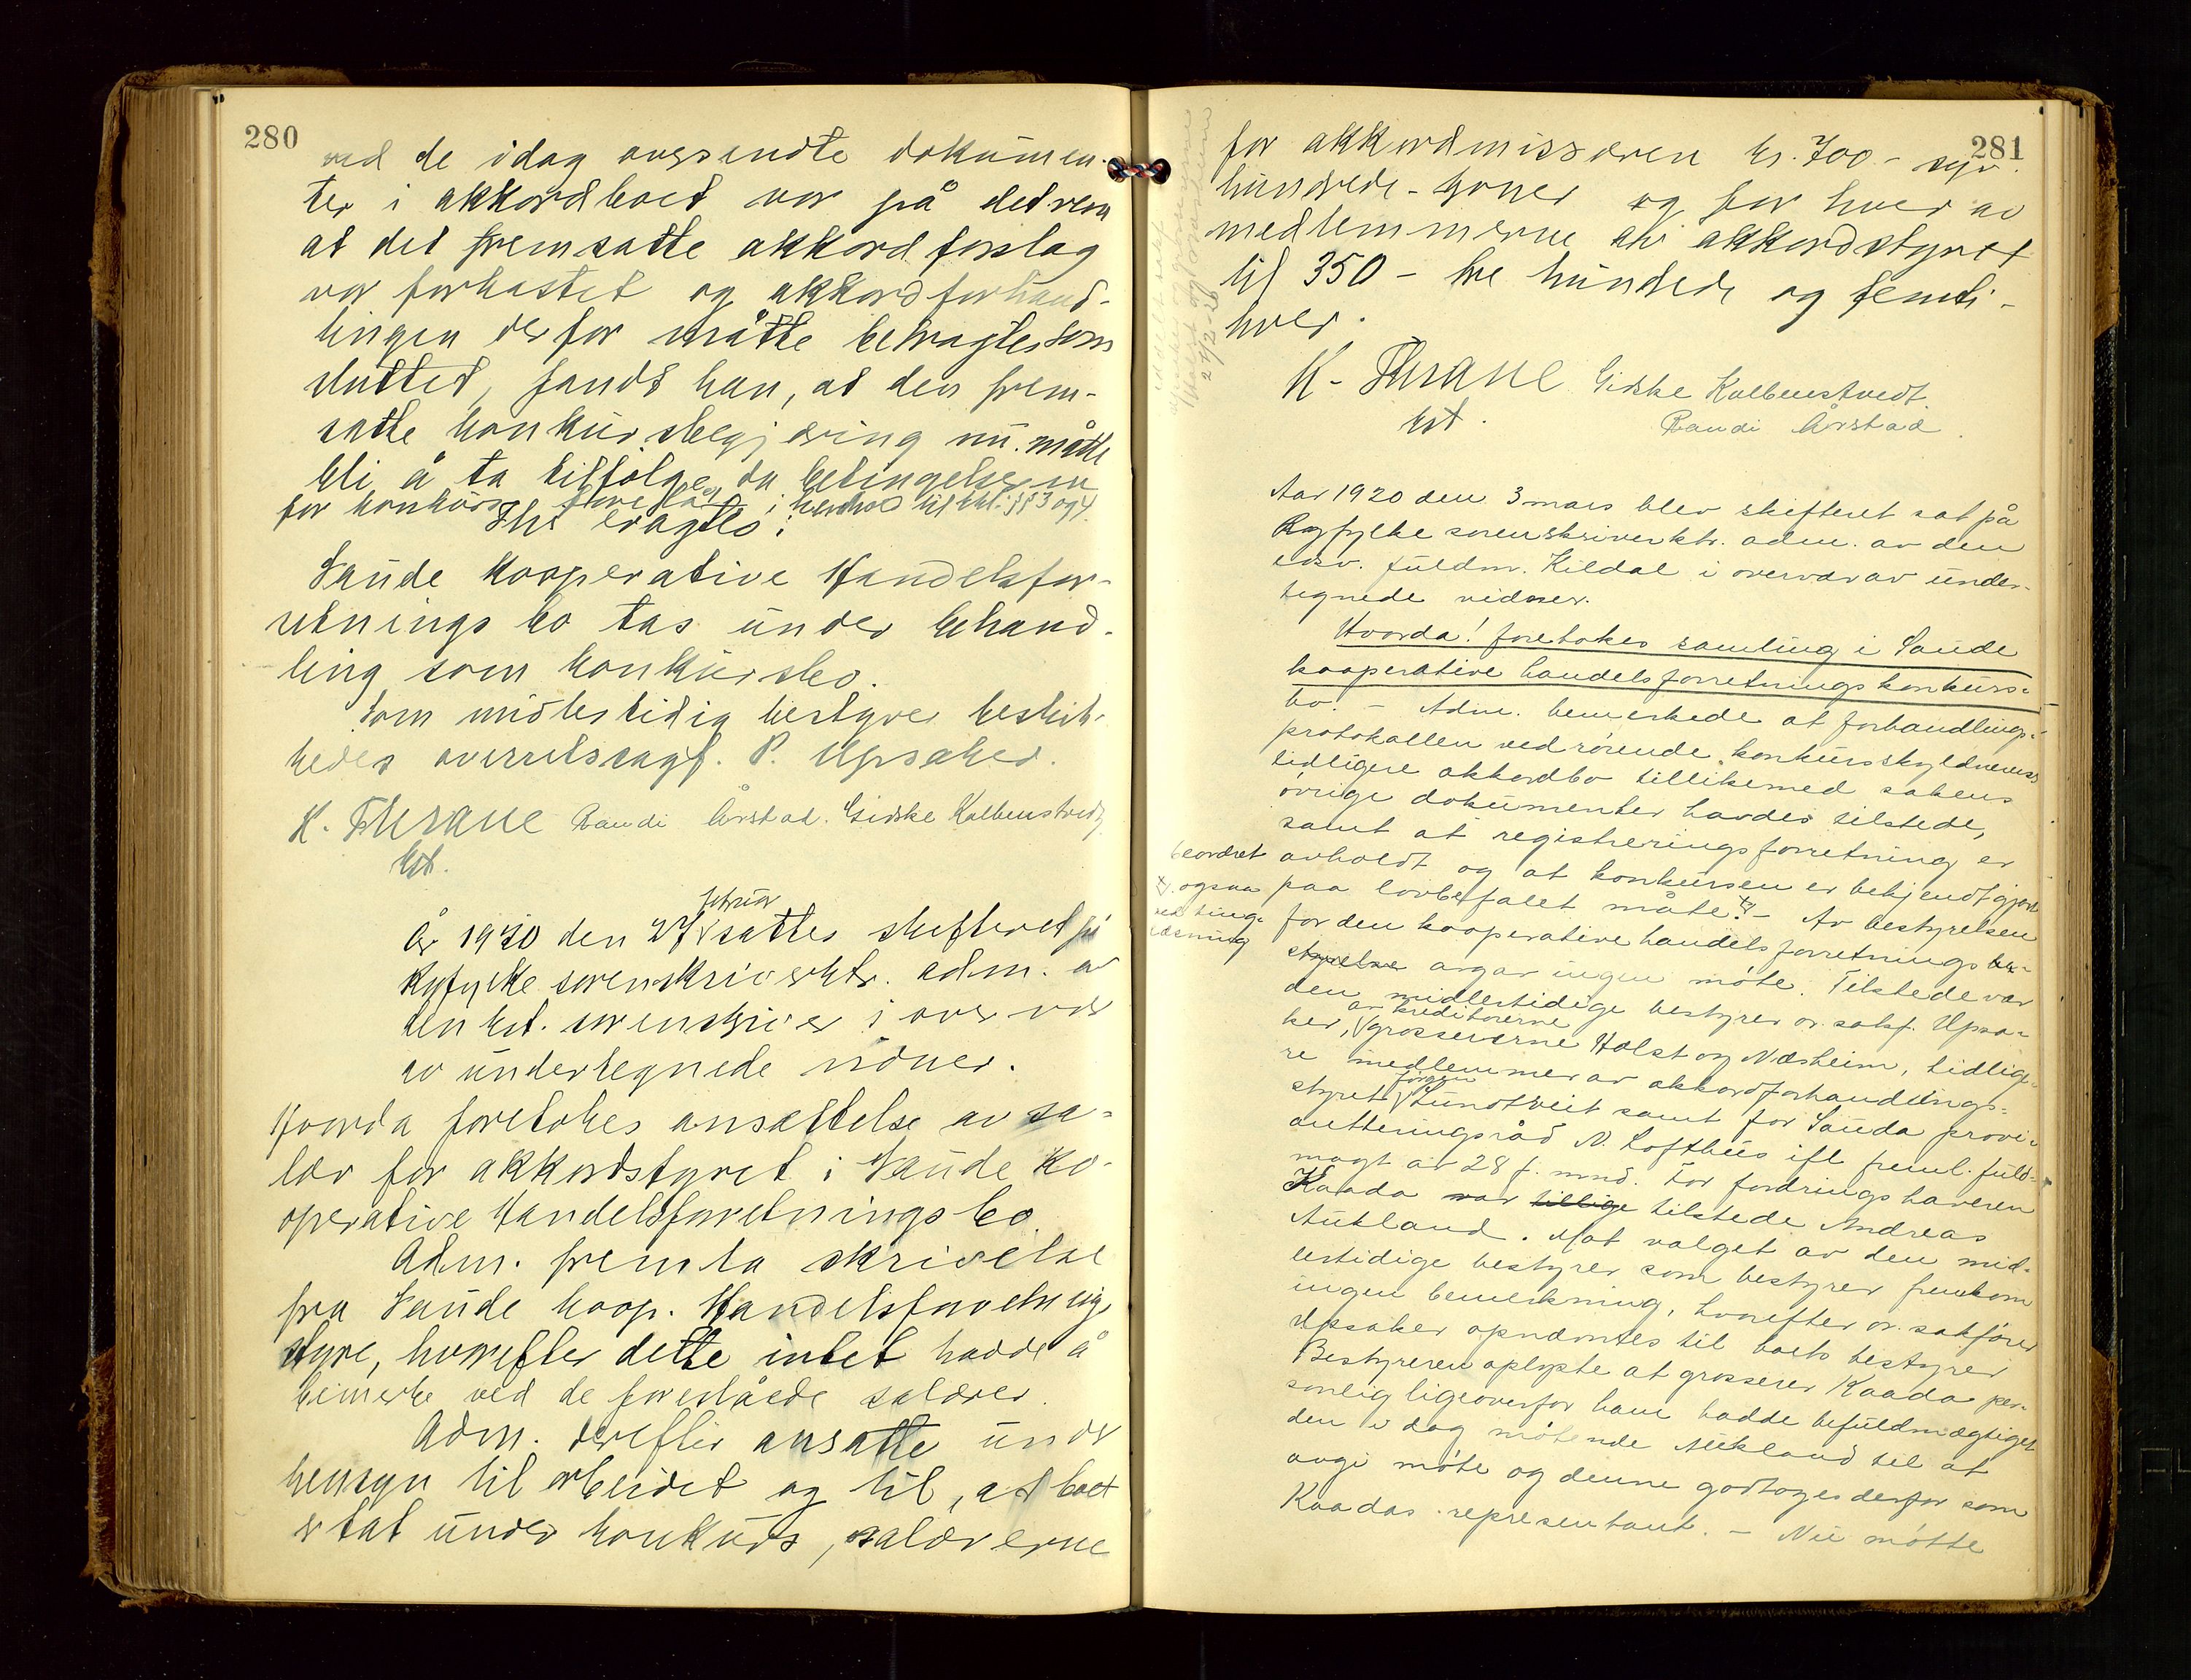 280
ved de idag oversendte dokumen-
ter i akkordboet var på det rene
at det fremsatte akkordforslag
var forkastet og akkordforhand-
lingen derfor måtte betragtes som
sluttet, fandt han, at den frem-
satte konkursbegjæring nu måtte
bli å ta tilfølge, da betingelserne
for konkurs forelå i henhold til kkl. §§ 3 og 4.
Thi eragtes:
Saude kooperative Handelsfor-
retnings bo tas under behand-
ling som konkursbo.
Som midlertidig bestyrer beskik-
kedes overretssagf. P. Upsaker.
K. Thrane Randi Årstad. Gidske Kolbenstvedt
kst.
År 1920 den 27 februar sattes skifteret på
Ryfylke sorenskriverktr. adm. av
den kst. sorenskriver i overvær
av undertegnede vidner.
Hvorda foretokes ansættelse av sa-
lær for akkordstyret i Saude ko-
operative Handelsforetnings bo.
Adm. fremla skrivelse
fra Saude koop. Handelsforetnings
styre, hvorefter dette intet hadde å
bemerke ved de foreslåede salærer.
Adm. derefter ansatte under
hensyn til arbeidet og til, at boet
er tat under konkurs, salærerne
281
for akkordmissæren kr. 700 - syv
hundrede - kroner og for hver av
medlemmerne av akkordstyret
til 350 - tre hundrede og femti -
hver.
K. Thrane Gidske Kolbenstvedt.
kst. Randi Årstad.
Aar 1920 den 3 mars blev skifteret sat på
Ryfylke sorenskriverktr. adm. av den
edsv. fuldm. Kildal i overvær av under-
tegnede vidner.
Hvorda! foretokes samling i Saude
kooperative handelsforretnings konkurs-
bo. - Adm. bemerkede at forhandlings-
protokollen vedrørende konkursskyldnerens
tidligere akkordbo tillikemed sakens
øvrige dokumenter havdes tilstede,
samt at registreringsforretning er
beordret avholdt og at konkursen er bekjendtgjort
ogsaa ved tinglæsning
paa lovbefalet måte. - Av bestyrelsen
for den kooperative handelsforretnings be-
styrelse avgav ingen møte. Tilstede var
den midlertidige bestyrer or. sakf. Upsa-
ker, av kreditorerne grossererne Holst og Næsheim, tidlige-
re medlemmer av akkordforhandlings-
styret, Jørgen Lundtveit samt for Sauda provi-
anteringsråd N. Lofthus ifl. freml. fuld-
magt av 28 f. mnd. For fordringshaveren
Kaada var tillige tilstede Andreas
Aukland. Mot valget av den mid-
lertidige bestyrer som bestyrer fremkom
ingen bemerkning, hvorefter or. sakfører
Upsaker opnævntes til boets bestyrer
Bestyreren oplyste at grosserer Kaada per-
sonlig ligeoverfor ham hadde befuldmægtiget
den i dag møtende Aukland til at
avgi møte og denne godtoges derfor som
Kaadas representant. - Nu møtte